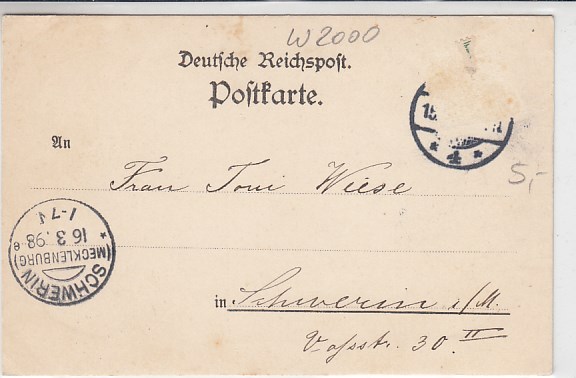 W2000
Deutsche Reichspost.
Postkarte.
15.
* 4 *
An
Frau Toni Wiese
5,-
SCHWERIN
(MECKLENBURG)
16 3. 98
1-7
in Schwerin i/M.
Vossstr. 30 II